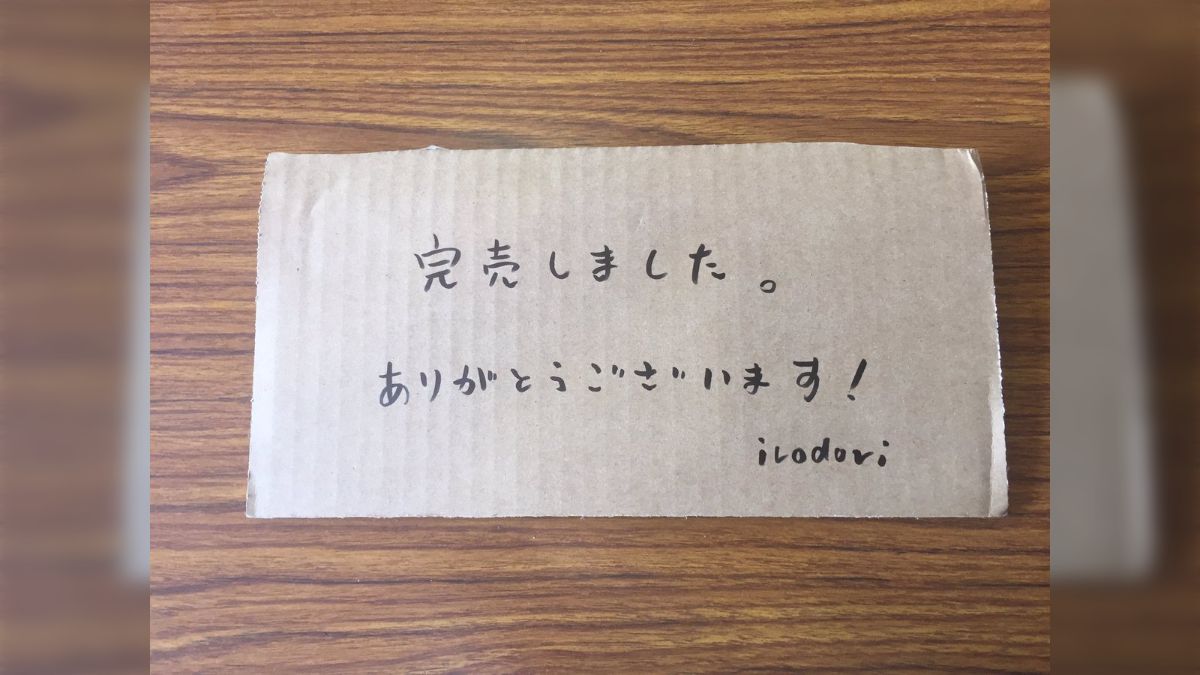 完売しました。
ありがとうございます!
irodori